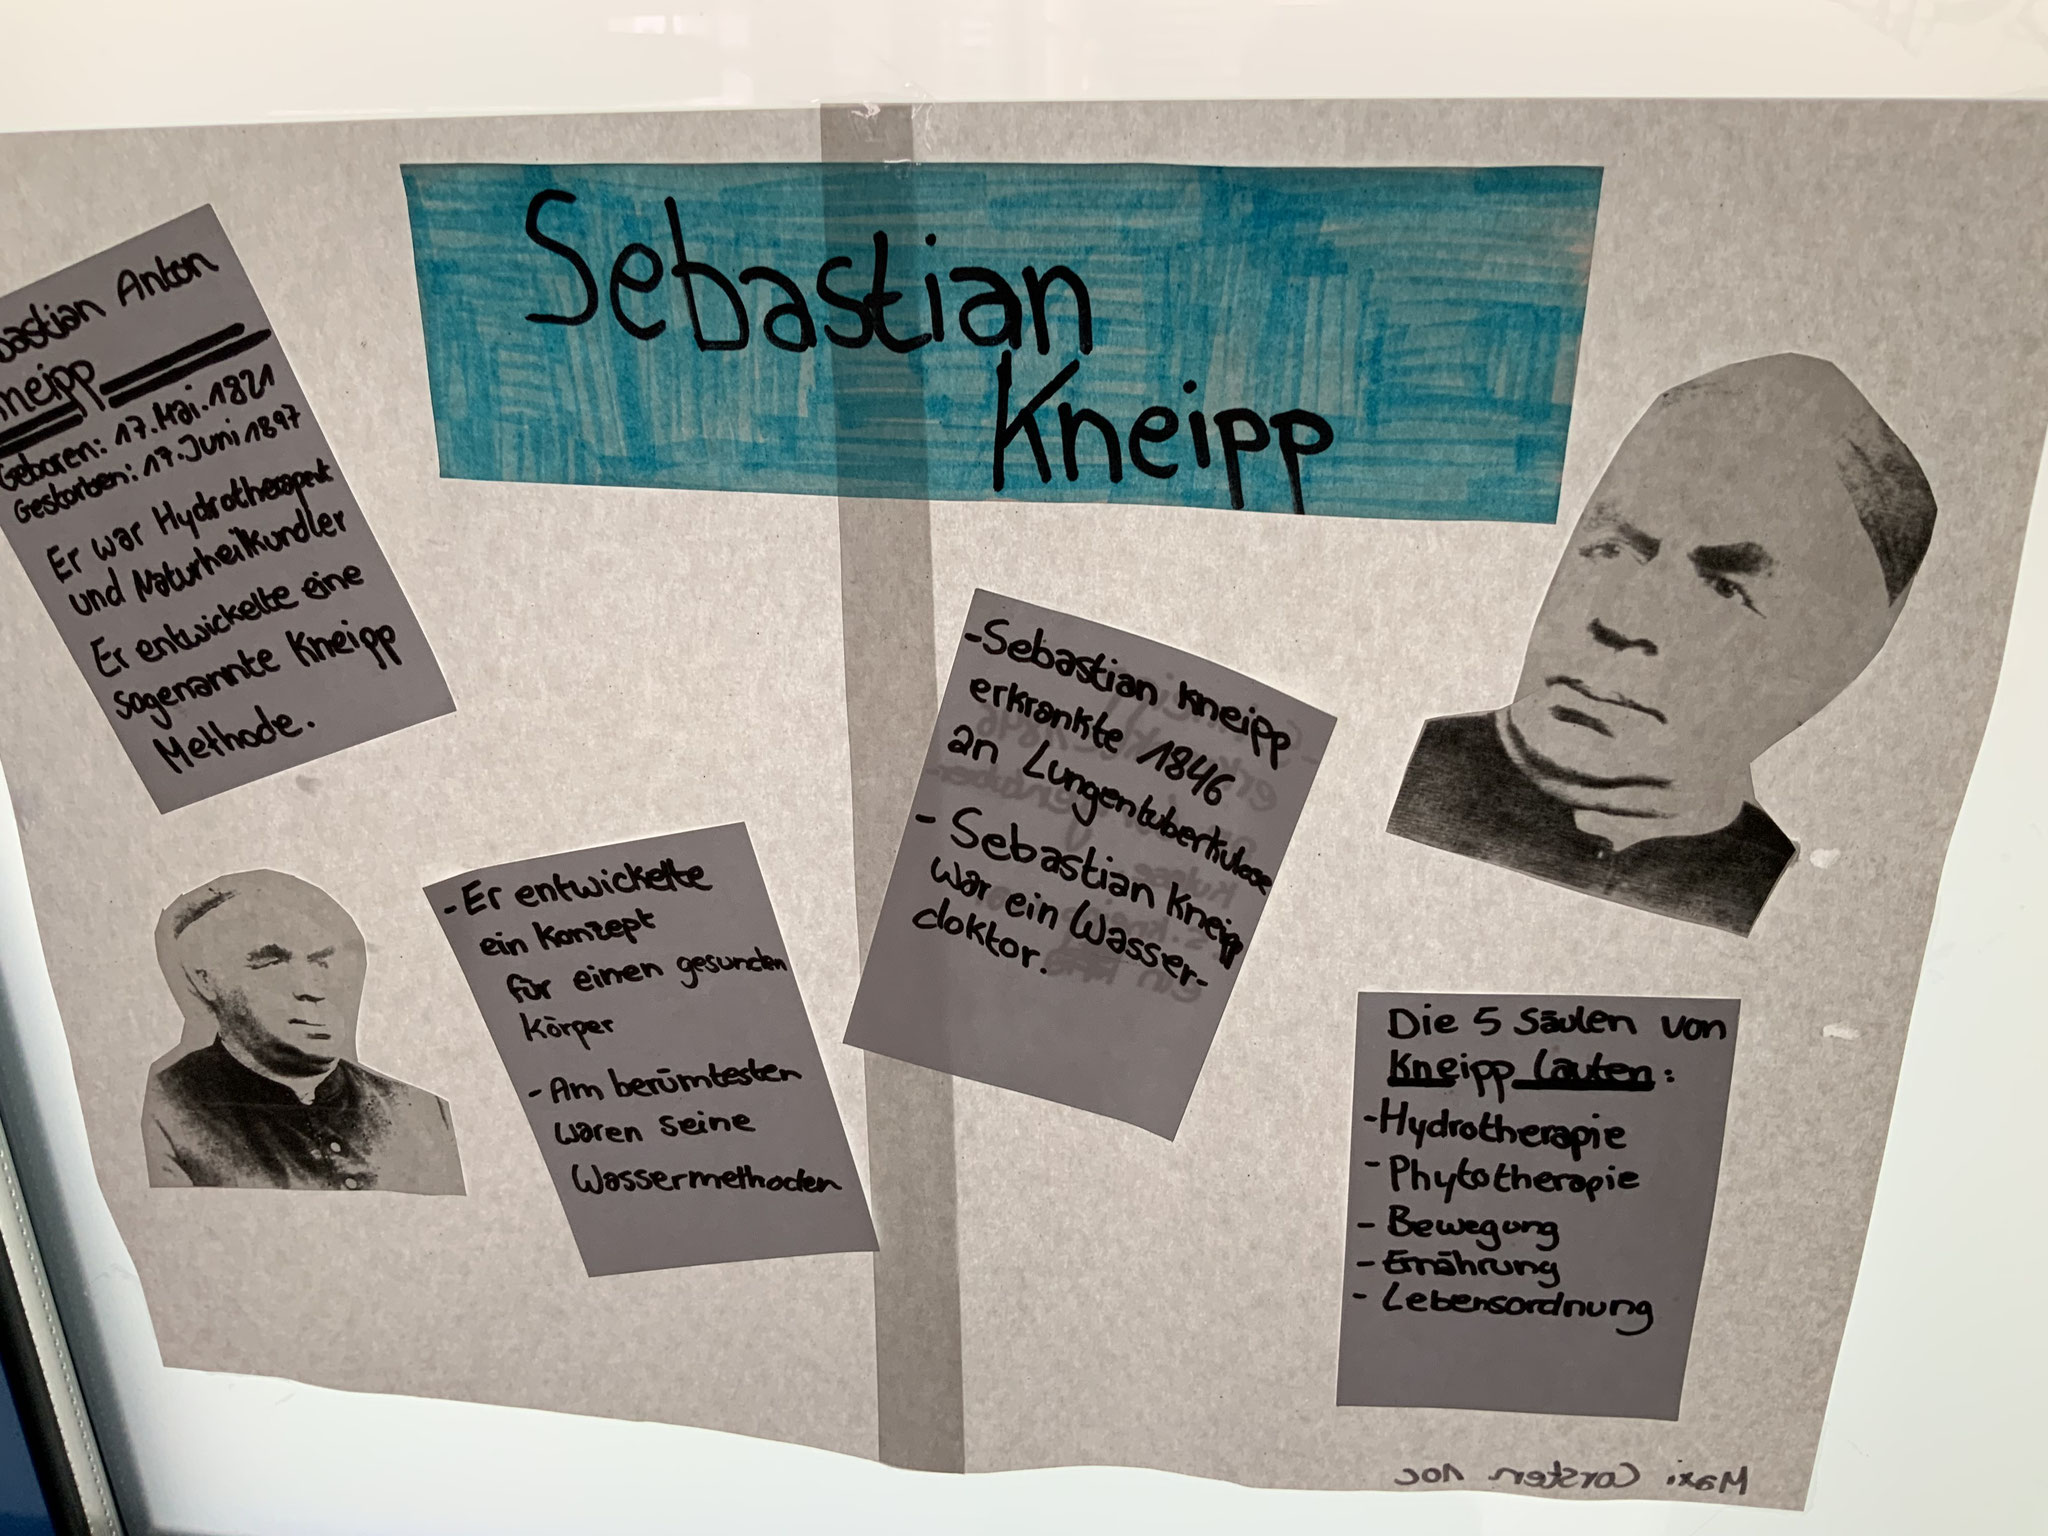 Sebastian
Kneipp
bastian Anton
neipp
Geboren: 17.Mai.1821
Gestorben: 17.Juni 1897
Er war Hydrotherapeut
und Naturheilkundler
Er entwickelte eine
sogenannte Kneipp
Methode.
-Er entwickelte
ein Konzept
für einen gesunden
Körper
-Am berümtesten
waren seine
Wassermethoden
-Sebastian Kneipp
erkrankte 1846
an Lungentuberkulose
- Sebastian Kneipp
war ein Wasser-
doktor.
Die 5 Säulen von
Kneipp lauten:
-Hydrotherapie
- Phytotherapie
- Bewegung
- Ernährung
- Lebensordnung
Maxi Carsten 10c